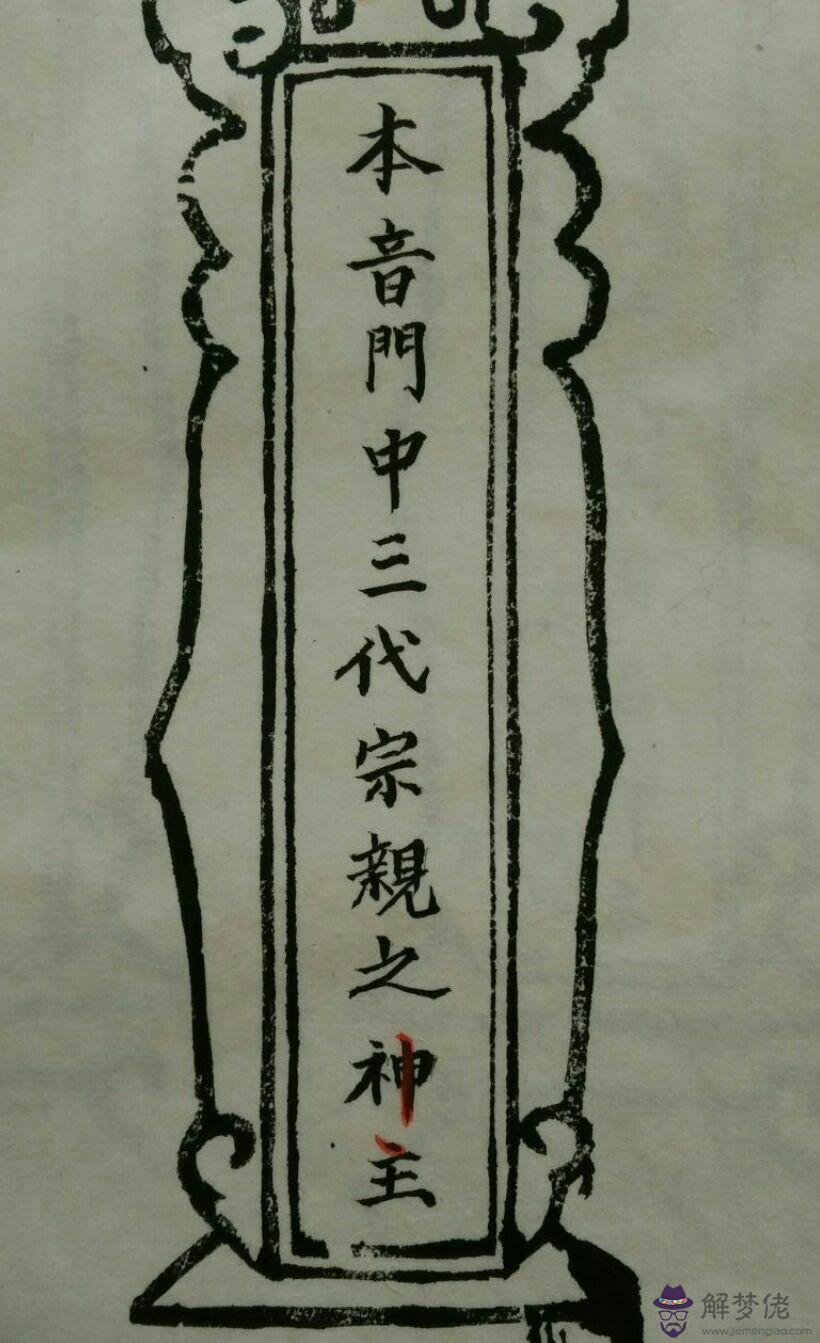 本音門中三代宗親之神主
解梦佬
www.jiemenglao.com